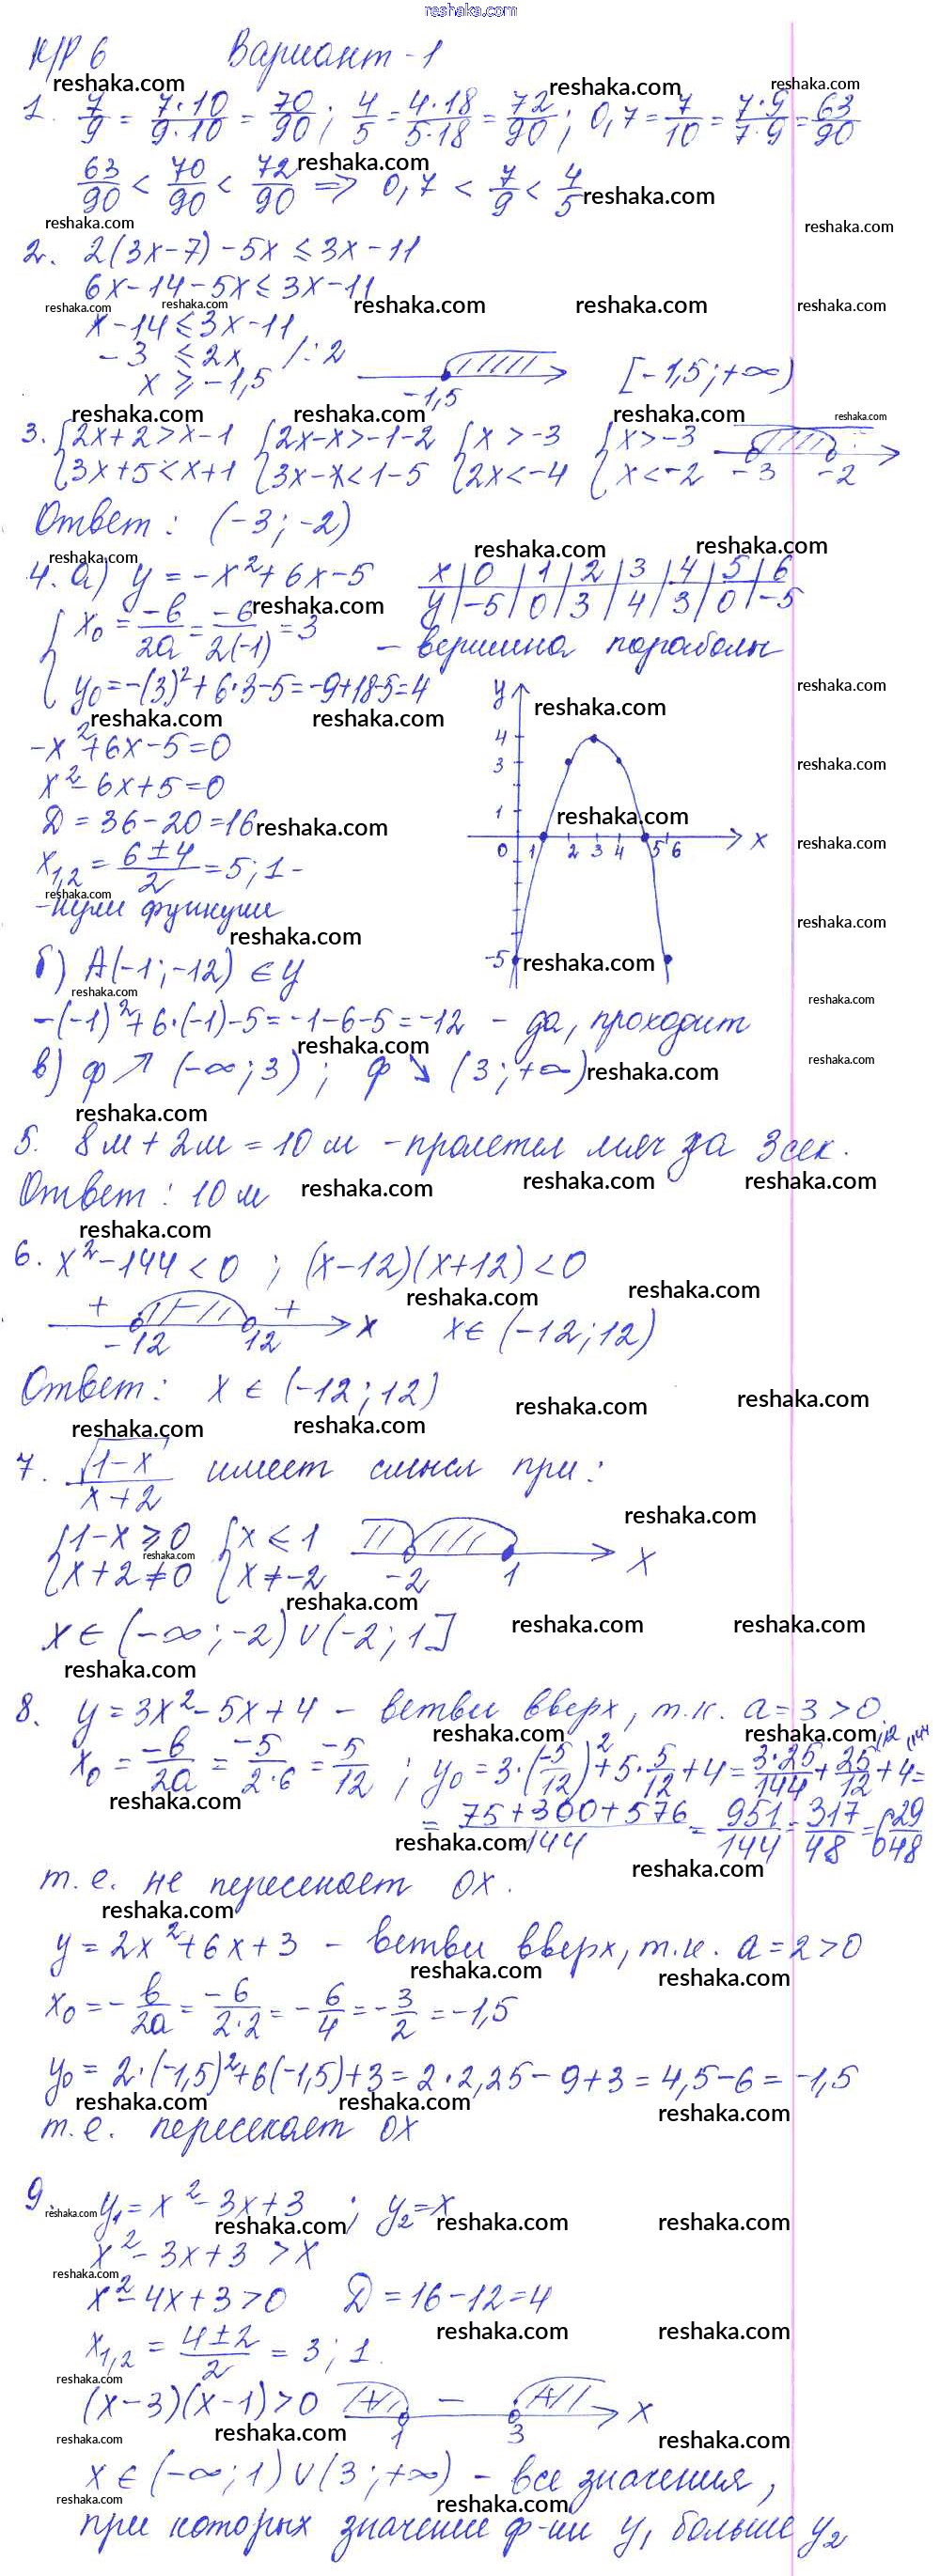 reshaka.com
К/Р 6 Вариант-1
1. 7/9 = 7·10/9·10 = 70/90; 4/5 = 4·18/5·18 = 72/90; 0,7 = 7/10 = 7·9/7·9 = 63/90
63/90 < 70/90 < 72/90 => 0,7 < 7/9 < 4/5
2. 2(3x-7)-5x ≤ 3x-11
6x-14-5x ≤ 3x-11
x-14 ≤ 3x-11
-3 ≤ 2x /:2
x ≥ -1,5 -1,5 [-1,5; +∞)
3. {2x+2>x-1 {2x-x>-1-2 {x>-3 {x>-3
{3x+5<x+1 {3x-x<1-5 {2x<-4 {x<-2 -3 -2
Ответ: (-3; -2)
4. а) y = -x²+6x-5 x | 0 | 1 | 2 | 3 | 4 | 5 | 6
y | -5 | 0 | 3 | 4 | 3 | 0 | -5
{x₀ = -b/2a = -6/2(-1) = 3 - вершина параболы
{y₀ = -(3)²+6·3-5 = -9+18-5 = 4
-x²+6x-5=0
x²-6x+5=0
D = 36-20 = 16
x₁,₂ = 6±4/2 = 5; 1 -
-нули функции
y 4 3 1 0 1 2 3 4 5 6 x -5
б) A(-1; -12) ∈ y
-(-1)²+6·(-1)-5 = -1-6-5 = -12 - да, проходит
в) ф ↗ (-∞; 3); ф ↘ (3; +∞)
5. 8м + 2м = 10м - пролетел мяч за 3сек.
Ответ: 10м
6. x²-144<0; (x-12)(x+12)<0
+ - + -12 12 x x∈(-12; 12)
Ответ: x∈(-12; 12)
7. √1-x/x+2 имеет смысл при:
{1-x ≥ 0 {x ≤ 1
{x+2 ≠ 0 {x ≠ -2 -2 1 x
x∈(-∞; -2)∪(-2; 1]
8. y = 3x²-5x+4 - ветви вверх, т.к. a=3>0.
x₀ = -b/2a = -5/2·6 = -5/12; y₀ = 3·(-5/12)²+5·5/12+4 = 3·25/144+25/12(12+4(144=
= 75+300+576/144 = 951/144 = 317/48 = 6 29/48
т.е. не пересекает OX.
y = 2x²+6x+3 - ветви вверх, т.к. a=2>0
x₀ = -b/2a = -6/2·2 = -6/4 = -3/2 = -1,5
y₀ = 2·(-1,5)²+6(-1,5)+3 = 2·2,25-9+3 = 4,5-6 = -1,5
т.е. пересекает OX
9. y₁ = x²-3x+3; y₂ = x
x²-3x+3 > x
x²-4x+3>0 D = 16-12 = 4
x₁,₂ = 4±2/2 = 3; 1.
(x-3)(x-1)>0 + - + 1 3 x
x∈(-∞; 1)∪(3; +∞) - все значения,
при которых значение ф-ии y₁ больше y₂